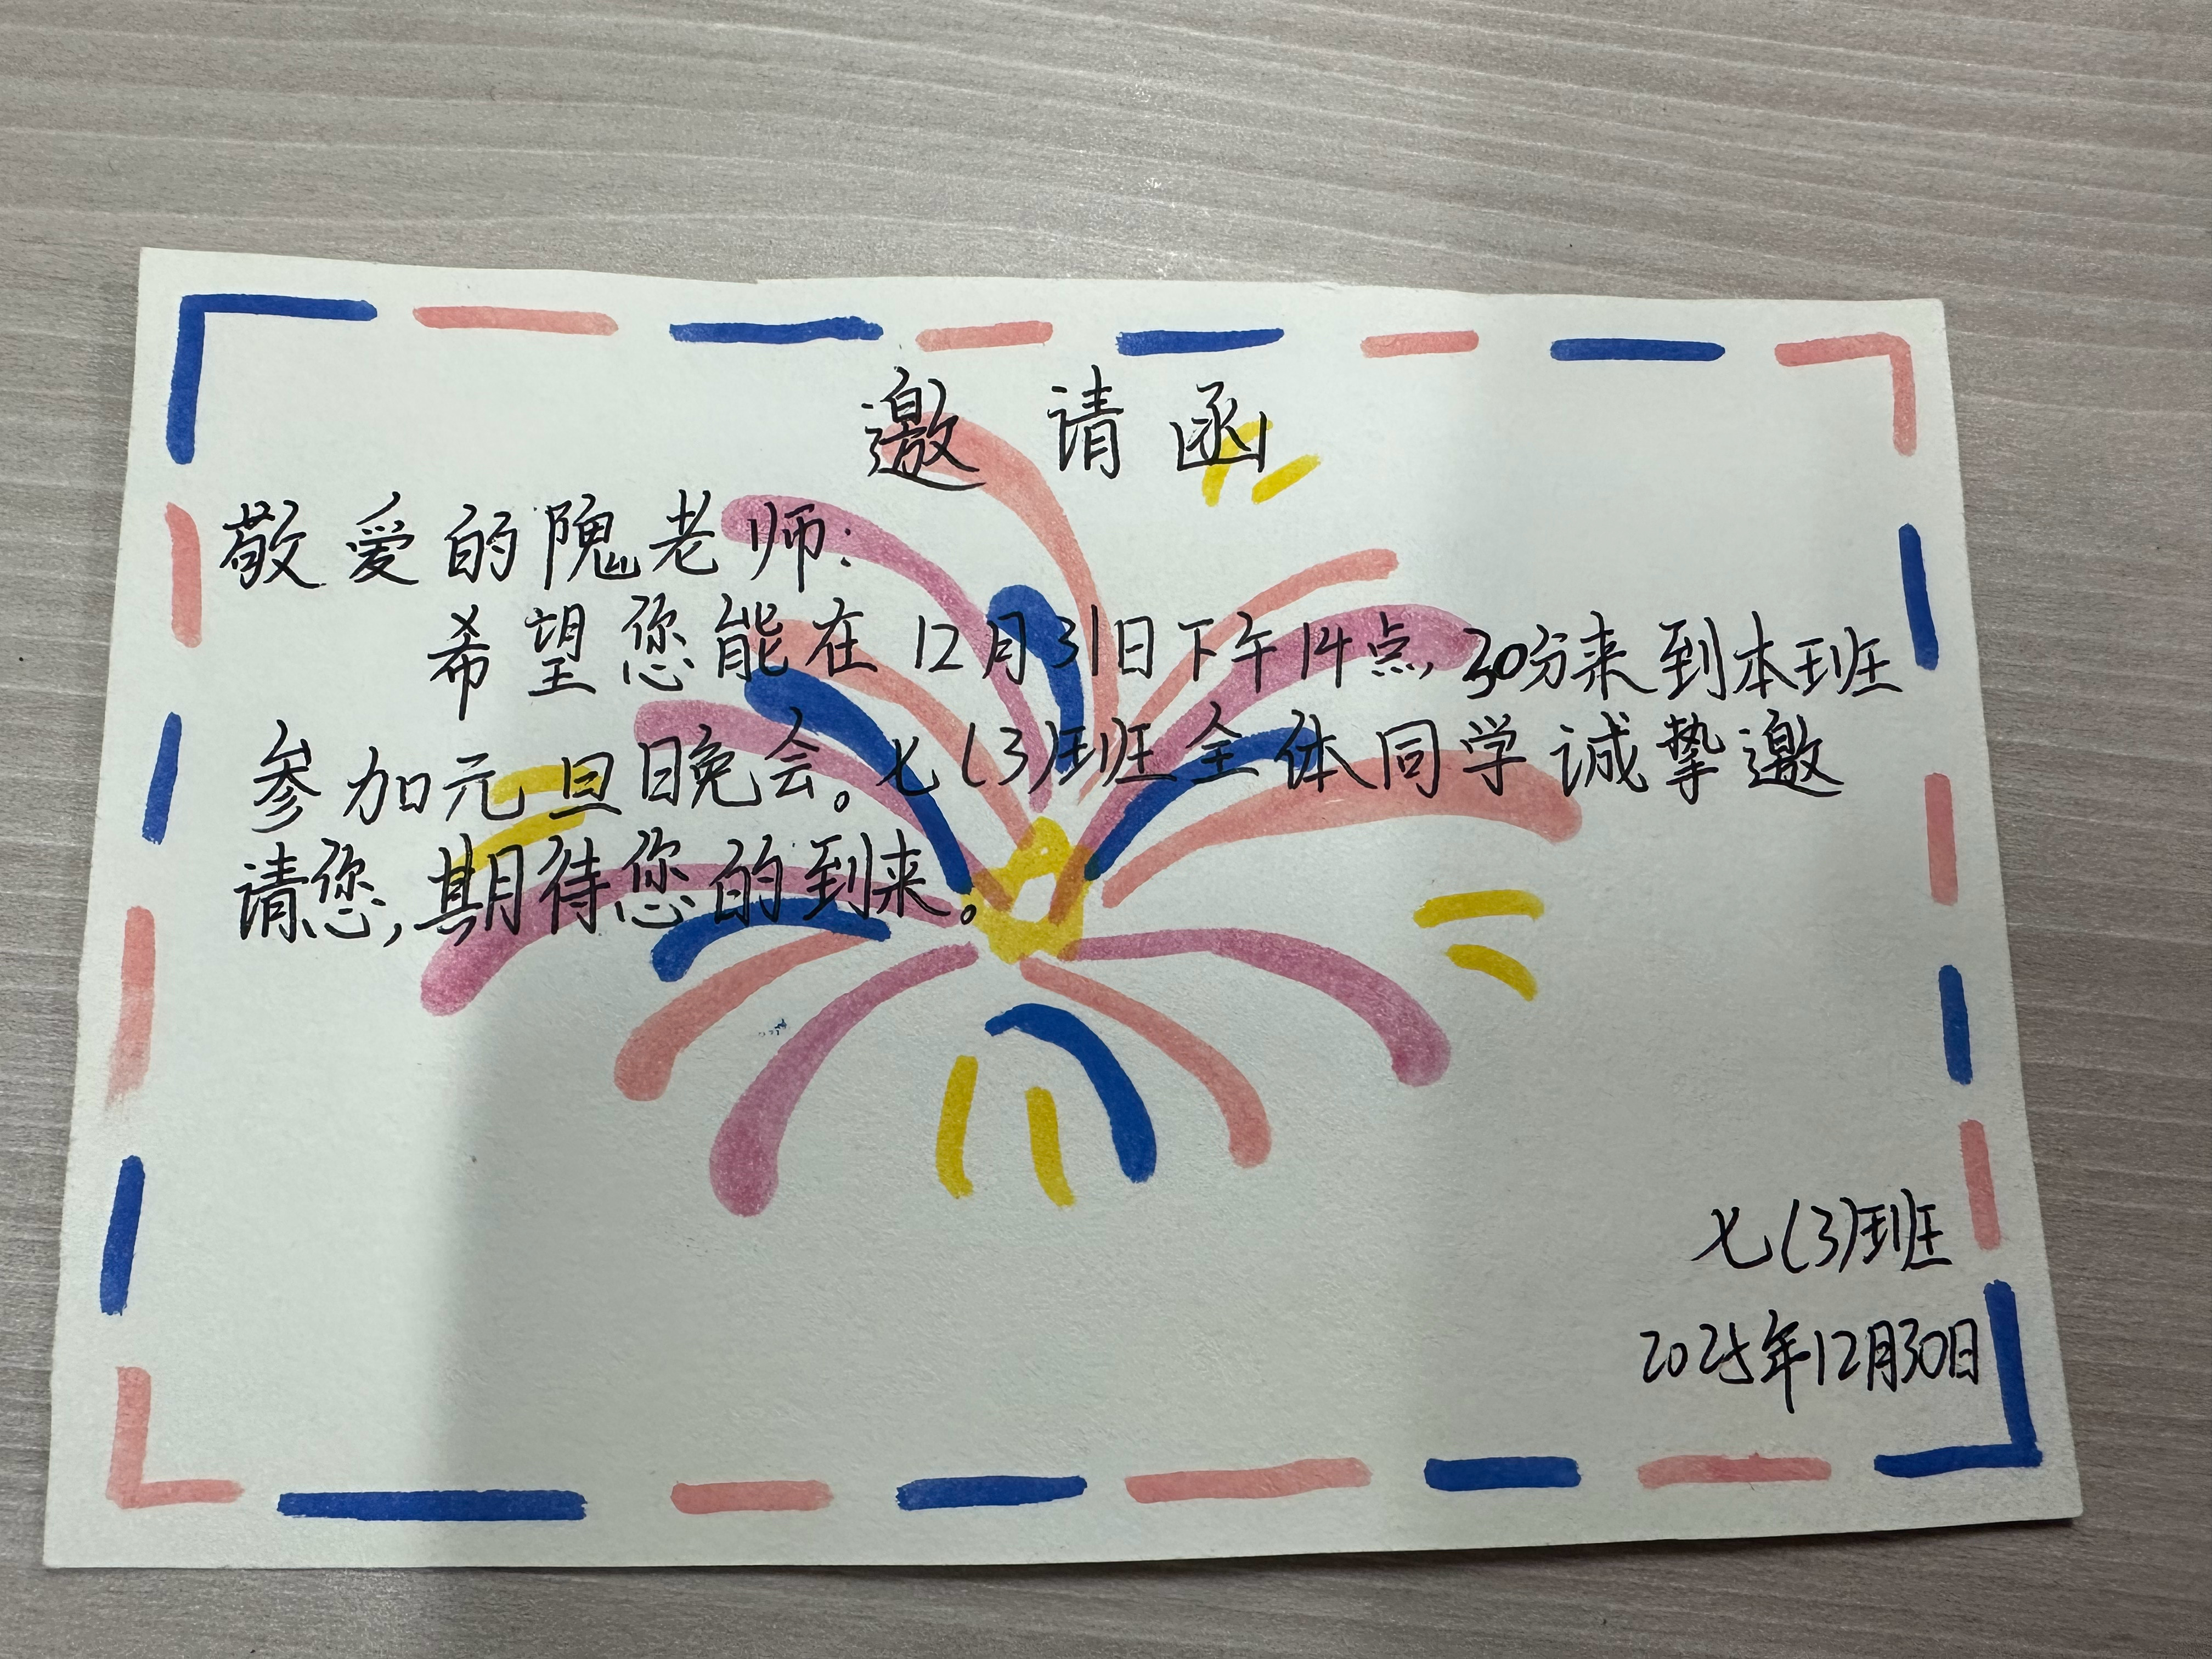 邀请函
敬爱的隗老师:
希望您能在12月31日下午14点30分来到本班
参加元旦晚会。七(3)班全体同学诚挚邀
请您,期待您的到来。
七(3)班
2025年12月30日